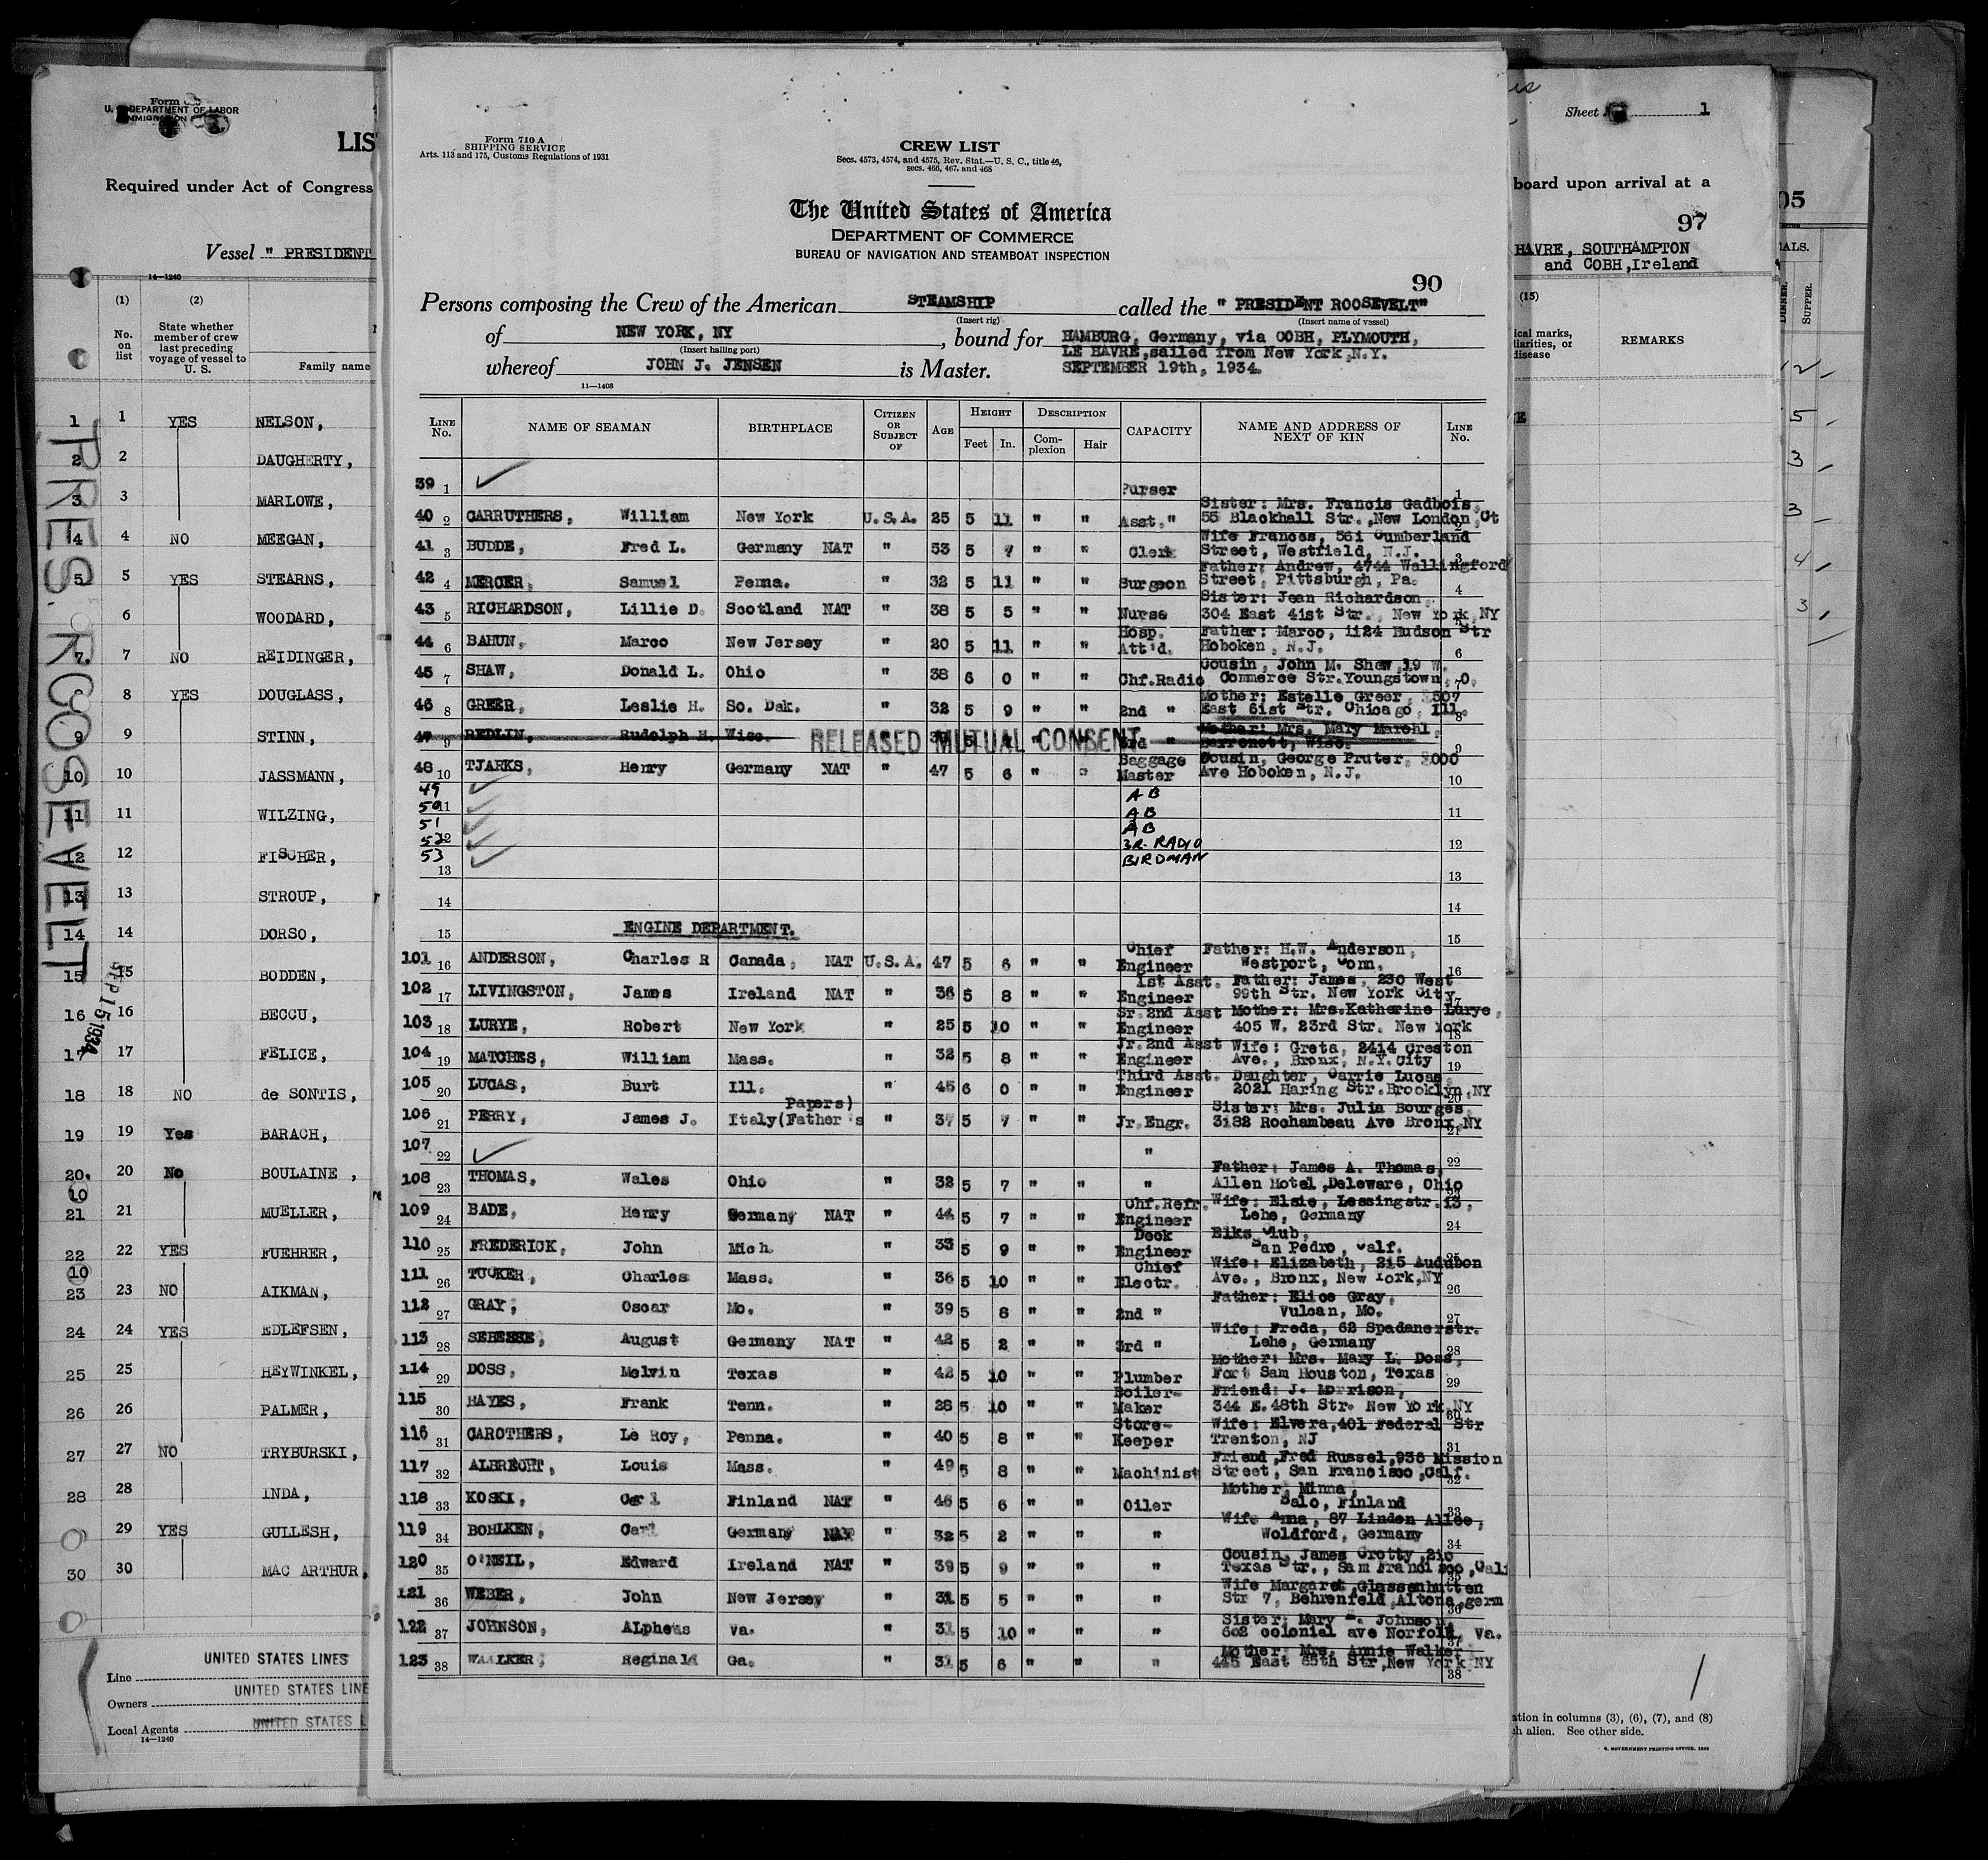 Form 710 A
SHIPPING SERVICE
Arts. 113 and 175, Customs Regulations of 1931
CREW LIST
Secs. 4573, 4574, and 4575, Rev. Stat.—U. S. C., title 46,
secs. 466, 467, and 468
The United States of America
DEPARTMENT OF COMMERCE
BUREAU OF NAVIGATION AND STEAMBOAT INSPECTION
90
Persons composing the Crew of the American STEAMSHIP called the " PRESIDENT ROOSEVELT"
(Insert rig) (Insert name of vessel)
of NEW YORK, NY, bound for HAMBURG, Germany, via COBH, PLYMOUTH,
(Insert hailing port) LE HAVRE, sailed from New York, N.Y.
whereof JOHN J. JENSEN is Master. SEPTEMBER 19th, 1934.
11—1408
LINE No. NAME OF SEAMAN BIRTHPLACE CITIZEN OR SUBJECT OF AGE HEIGHT Feet In. DESCRIPTION Complexion Hair CAPACITY NAME AND ADDRESS OF NEXT OF KIN LINE No.
39 1 Purser 1
Sister: Mrs. Francis Gadbois,
40 2 CARRUTHERS, William New York U.S.A. 25 5 11 " " Asst." 55 Blackhall Str.,New London,Ct 2
Wife Frances, 561 Cumberland
41 3 BUDDE, Fred L. Germany NAT " 53 5 7 " " Clerk Street, Westfield, N.J. 3
Father: Andrew, 4744 Wallingford
42 4 MERCER, Samuel Penna. " 32 5 11 " " Surgeon Street, Pittsburgh, Pa. 4
Sister: Jean Richardson,
43 5 RICHARDSON, Lillie D. Scotland NAT " 38 5 5 " " Nurse 304 East 41st Str., New York,NY
Hosp. Father: Marco, 1124 Hudson Str
44 6 BAHUN, Marco New Jersey " 20 5 11 " " Att'd. Hoboken, N.J. 6
Cousin, John M. Shaw,19 W.
45 7 SHAW, Donald L. Ohio " 38 6 0 " " Chf.Radio Commerce Str.Youngstown, O. 7
Mother: Estelle Greer,
46 8 GREER, Leslie H. So. Dak. " 32 5 9 " " 2nd " East 61st Str. Chicago, Ill. 8
Mother: Mrs. Mary Marchl,
47 9 REDLIN, Rudolph H. Wisc. RELEASED MUTUAL CONSENT 3rd " Barronett, Wisc. 9
Baggage Cousin, George Pruter,
48 10 TJARKS, Henry Germany NAT " 47 5 6 " " Master Ave Hoboken, N.J. 10
49 AB
50 11 AB 11
51 AB
52 12 3R. RADIO 12
53 BIRDMAN
13 13
14 14
15 ENGINE DEPARTMENT. 15
Chief Father: H.W. Anderson,
101 16 ANDERSON, Charles R Canada, NAT U.S.A. 47 5 6 " " Engineer Westport, Conn. 16
1st Asst. Father: James, 230 West
102 17 LIVINGSTON, James Ireland NAT " 36 5 8 " " Engineer 99th Str. New York City 17
Sr.2nd Asst Mother: Mrs.Katherine Lurye,
103 18 LURYE, Robert New York " 25 5 10 " " Engineer 405 W. 23rd Str. New York 18
Jr.2nd Asst Wife: Greta, 2414 Creston
104 19 MATCHES, William Mass. " 32 5 8 " " Engineer Ave., Bronx, N.Y.City 19
Third Asst. Daughter, Carrie Lucas,
105 20 LUCAS, Burt Ill. " 45 6 0 " " Engineer 2021 Haring Str.Brooklyn,NY 20
Papers) Sister: Mrs. Julia Bourges,
106 21 PERRY, James J. Italy(Father's " 37 5 7 " " Jr.Engr. 3182 Rochambeau Ave Bronx,NY 21
107 22 " 22
Father: James A. Thomas,
108 23 THOMAS, Wales Ohio " 32 5 7 " " " Allen Hotel,Deleware, Ohio 23
Chf.Refr. Wife: Elsie, Lessingstr.13,
109 24 BADE, Henry Germany NAT " 44 5 7 " " Engineer Lehe, Germany 24
Deck Elks Club,
110 25 FREDERICK, John Mich. " 33 5 9 " " Engineer San Pedro, Calf. 25
Chief Wife: Elizabeth, 215 Audubon
111 26 TUCKER, Charles Mass. " 36 5 10 " " Electr. Ave., Bronx, New York,NY 26
Father: Elice Gray,
112 27 GRAY, Oscar Mo. " 39 5 8 " " 2nd " Vulcan, Mo. 27
Wife: Freda, 62 Spadanerstr.
113 28 SEBESSE, August Germany NAT " 42 5 2 " " 3rd " Lehe, Germany 28
Mother: Mrs. Mary L. Doss,
114 29 DOSS, Melvin Texas " 42 5 10 " " Plumber Fort Sam Houston, Texas 29
Boiler- Friend: J. Morrison,
115 30 HAYES, Frank Tenn. " 28 5 10 " " Maker 344 E.48th Str. New York,NY 30
Store- Wife: Elvera,401 Federal Str
116 31 CAROTHERS, Le Roy, Penna. " 40 5 8 " " Keeper Trenton, NJ 31
Friend,Fred Russel,936 Mission
117 32 ALBRECHT, Louis Mass. " 49 5 8 " " Machinist Street, San Francisco,Calf. 32
Mother, Minna,
118 33 KOSKI, Carl Finland NAT " 46 5 6 " " Oiler Salo, Finland 33
Wife Anna, 87 Linden Allee,
119 34 BOHLKEN, Carl Germany NAT " 32 5 2 " " " Woldford, Germany 34
Cousin, James Crotty,210
120 35 O'NEIL, Edward Ireland NAT " 39 5 9 " " " Texas Str., Sam Francisco,Cali 35
Wife Margaret,Glassenhutten
121 36 WEBER, John New Jersey " 31 5 5 " " " Str 7, Behrenfeld,Altona,germ 36
Sister: Mary Johnson,
122 37 JOHNSON, ALpheus Va. " 31 5 10 " " " 602 colonial ave Norfolk, Va. 37
Mother: Mrs. Annie Walker
123 38 WAALKER, Reginald Ga. " 31 5 6 " " " 445 East 65th Str,New York,NY 38
Form
U. S. DEPARTMENT OF LABOR
IMMIGRATION
LIS
Required under Act of Congress
Vessel " PRESIDENT
14—1240
(1) (2)
No. on list State whether member of crew last preceding voyage of vessel to U. S. Family name
1 1 YES NELSON,
2 2 DAUGHERTY,
3 3 MARLOWE,
4 4 NO MEEGAN,
5 5 YES STEARNS,
6 WOODARD,
7 7 NO REIDINGER,
8 8 YES DOUGLASS,
9 9 STINN,
10 10 JASSMANN,
11 11 WILZING,
12 12 FISCHER,
13 13 STROUP,
14 14 DORSO,
15 15 BODDEN,
16 16 BECCU,
17 17 FELICE,
18 18 NO de SONTIS,
19 19 Yes BARACH,
20 20 No BOULAINE,
10
21 21 MUELLER,
22 22 YES FUEHRER,
10
23 23 NO AIKMAN,
24 24 YES EDLEFSEN,
25 25 HEYWINKEL,
26 26 PALMER,
27 27 NO TRYBURSKI,
28 28 INDA,
29 YES GULLESH,
30 30 MAC ARTHUR,
PRES. ROOSEVELT
SEP 15 1934
UNITED STATES LINES
Line
UNITED STATES LINE
Owners
UNITED STATES L
Local Agents
14—1240
Sheet 1
board upon arrival at a
97
HAVRE, SOUTHAMPTON
and COBH,Ireland
(15)
ical marks,
liarities, or
disease
REMARKS
E
1
ation in columns (3), (6), (7), and (8)
ch alien. See other side.
GOVERNMENT PRINTING OFFICE
05
ALS.
DINNER.
SUPPER.
12
5
3
3
4
3